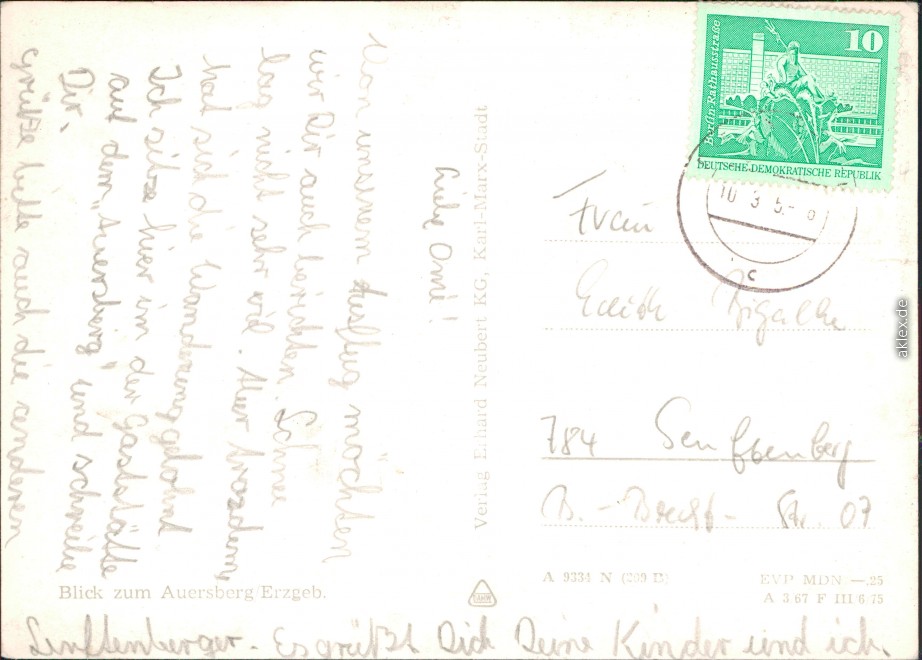 Liebe Omi!
Von unserem Ausflug möchten
wir Dir auch berichten. Schnee
lag nicht sehr viel. Aber trozdem,
hat sich die Wanderung gelohnt
Ich sitze hier in der Gaststätte
auf dem "Auersberg" und schreibe
Dir.
Grüße bitte auch die anderen
Senftenberger. Es grüßt Dich Deine Kinder und ich.
Blick zum Auersberg/Erzgeb.
Verlag Erhard Neubert KG, Karl-Marx-Stadt
10
Berlin-Rathausstraße
DEUTSCHE DEMOKRATISCHE REPUBLIK
c
Frau
Edith
784 Senftenberg
B.-Brecht-Str. 07
A 9334 N (209 B)
EVP MDN —,25
A 3/67 F III/6/75
aklex.de